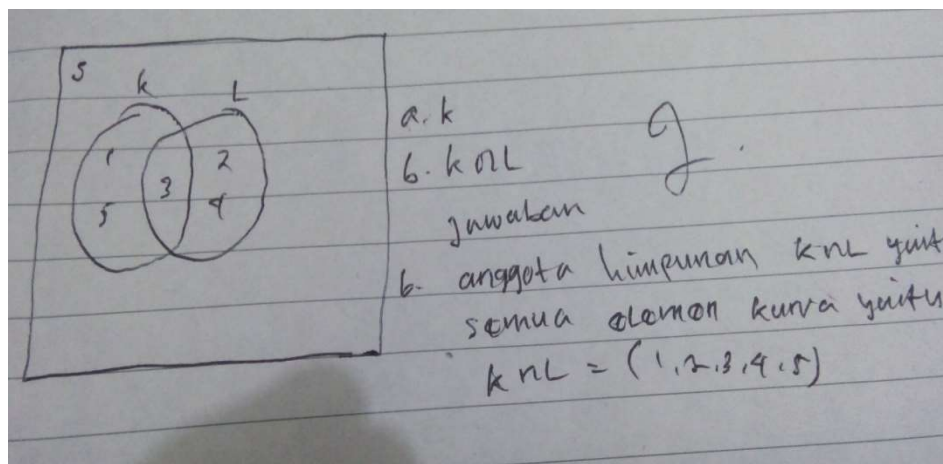 S
K L
1 3 2
5 4
a. K
b. K ∩ L
Jawaban
b. anggota himpunan K ∩ L yait
semua elemen kurva yaitu
K ∩ L = (1,2,3,4,5)